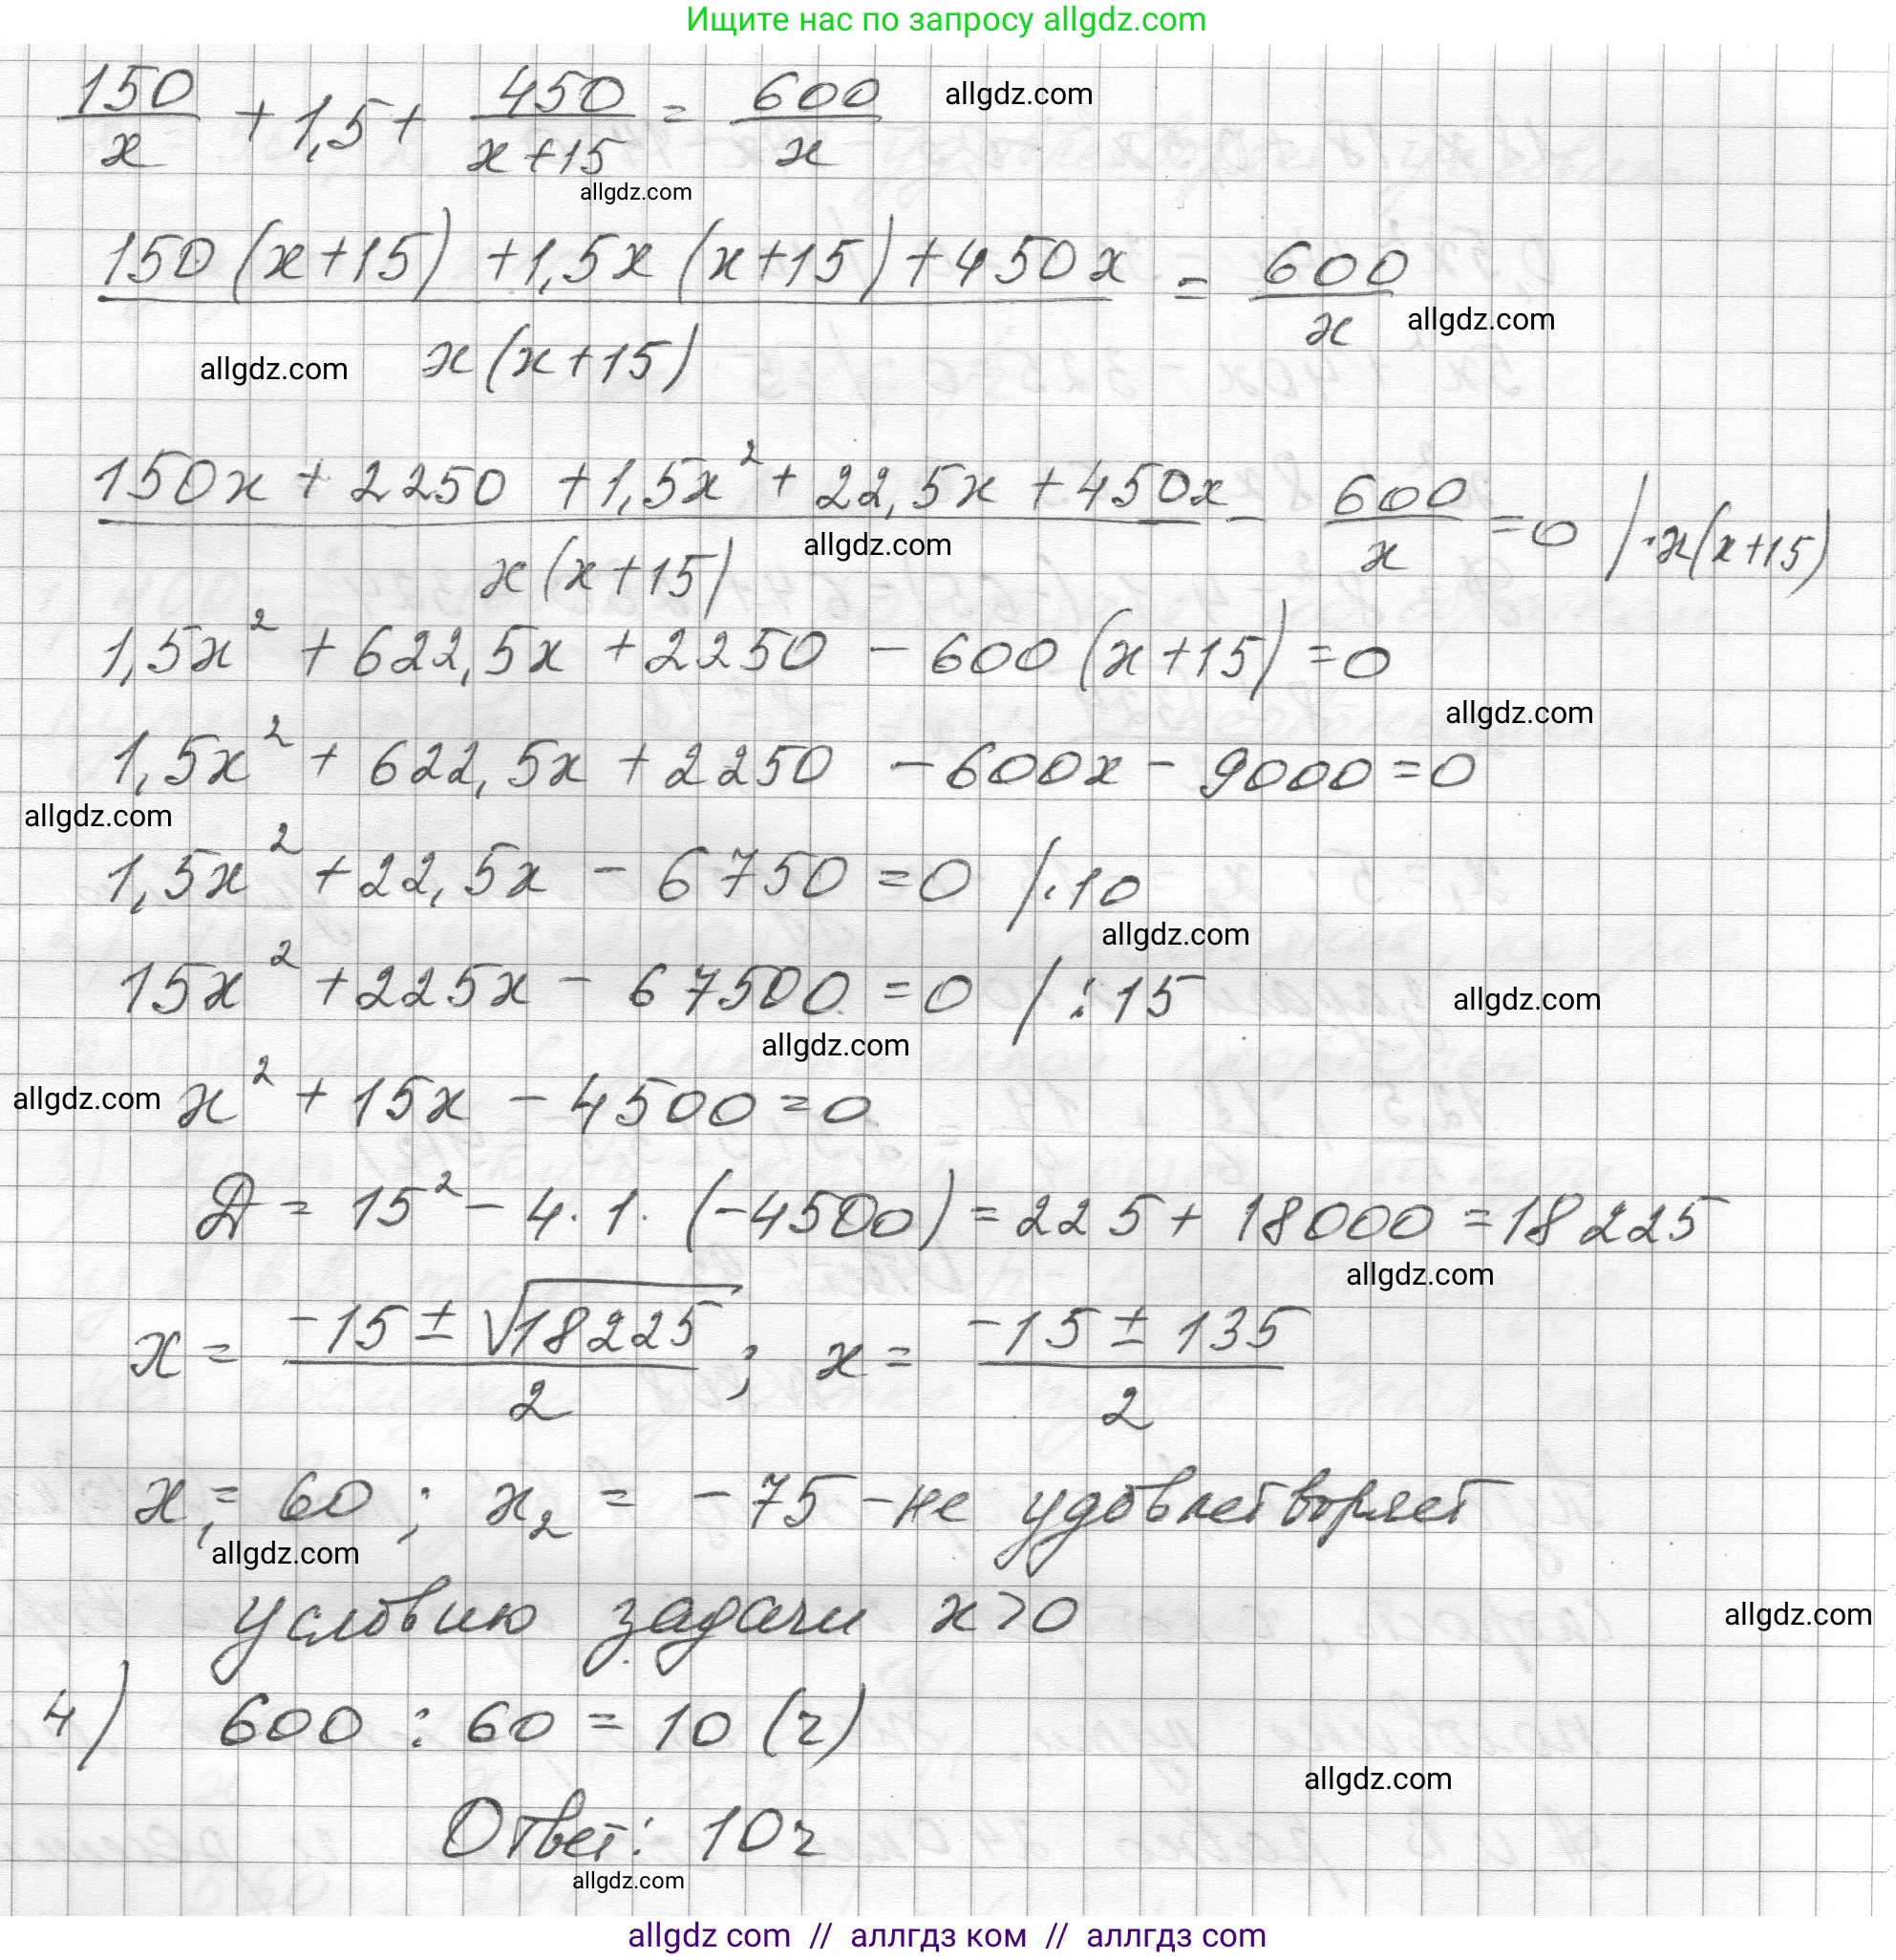 Ищите нас по запросу allgdz.com
150/x + 1,5 + 450/(x+15) = 600/x allgdz.com
allgdz.com
(150(x+15) + 1,5x(x+15) + 450x)/(x(x+15)) = 600/x allgdz.com
allgdz.com
(150x + 2250 + 1,5x² + 22,5x + 450x)/(x(x+15)) - 600/x = 0 /·x(x+15)
allgdz.com
1,5x² + 622,5x + 2250 - 600(x+15) = 0
allgdz.com
1,5x² + 622,5x + 2250 - 600x - 9000 = 0
allgdz.com
1,5x² + 22,5x - 6750 = 0 /·10
allgdz.com
15x² + 225x - 67500 = 0 /:15 allgdz.com
allgdz.com
allgdz.com x² + 15x - 4500 = 0
Д = 15² - 4·1·(-4500) = 225 + 18000 = 18225
allgdz.com
x = (-15 ± √18225)/2 ; x = (-15 ± 135)/2
x₁ = 60 ; x₂ = -75 - не удовлетворяет
allgdz.com
условию задачи x>0 allgdz.com
4) 600 : 60 = 10 (ч)
allgdz.com
Ответ: 10ч
allgdz.com
allgdz com // аллгдз ком // аллгдз com